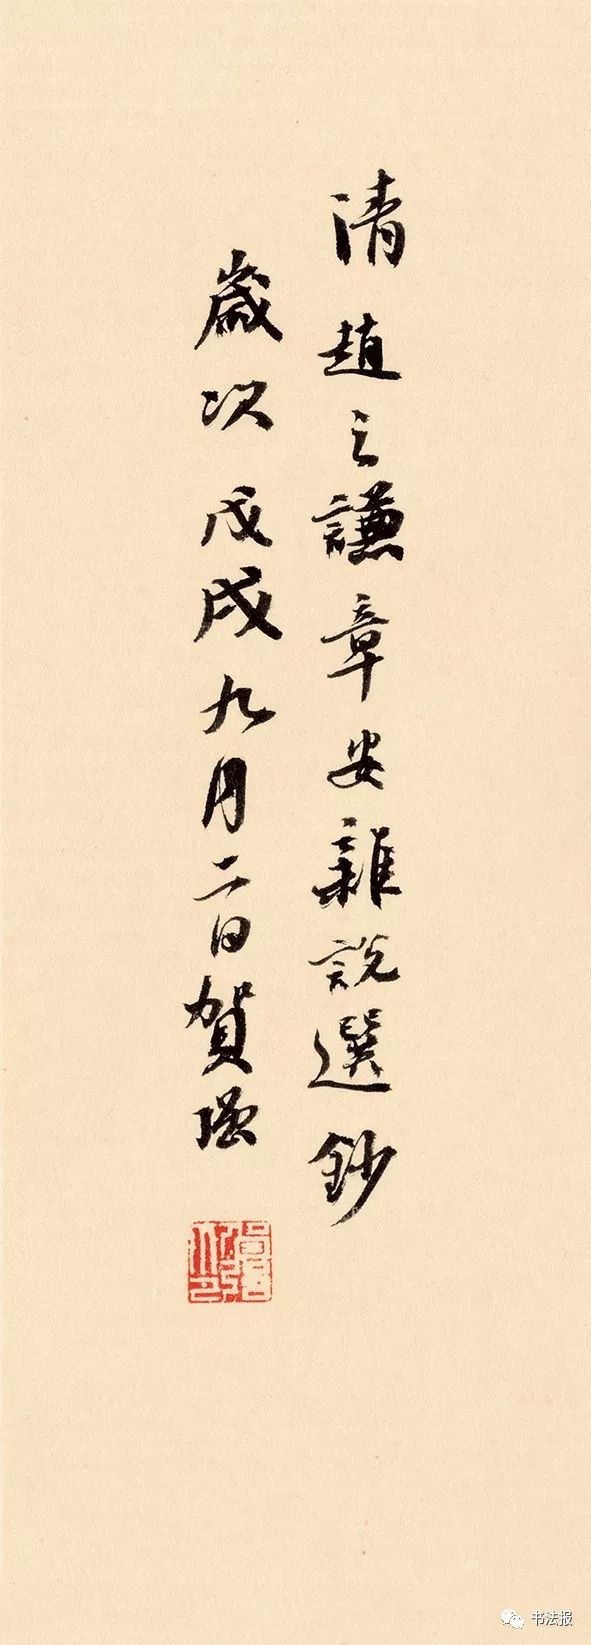 清趙之謙章安雜說選鈔
歲次戊戌九月二日賀強
书法报